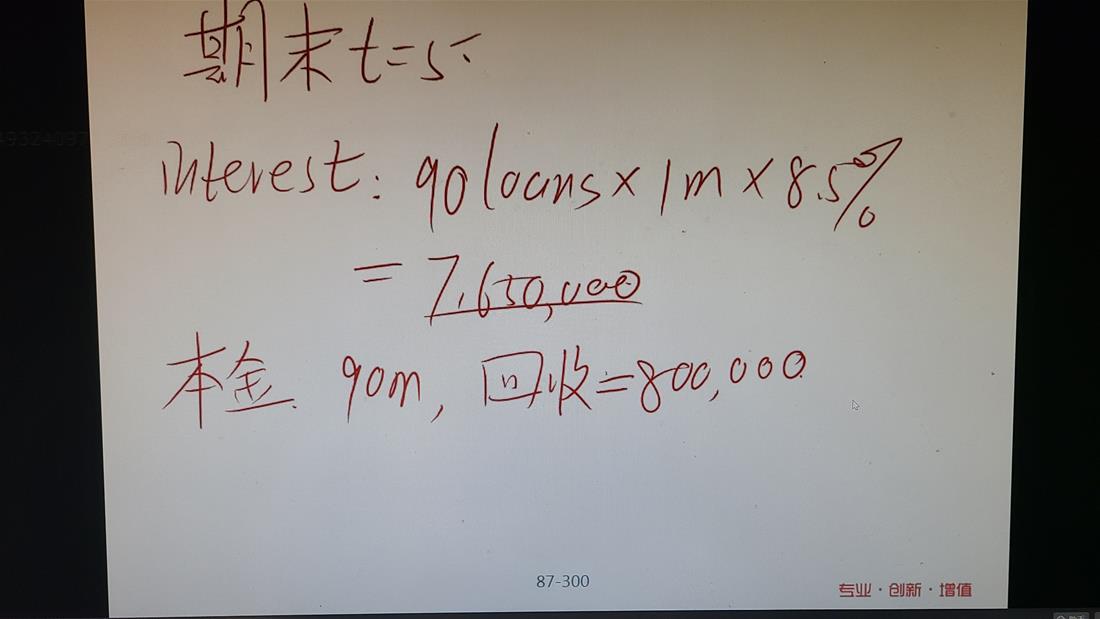 期末 t=5:
interest: 90 loans × 1m × 8.5%
= 7,650,000
本金 90m, 回收=800,000
87-300
专业·创新·增值